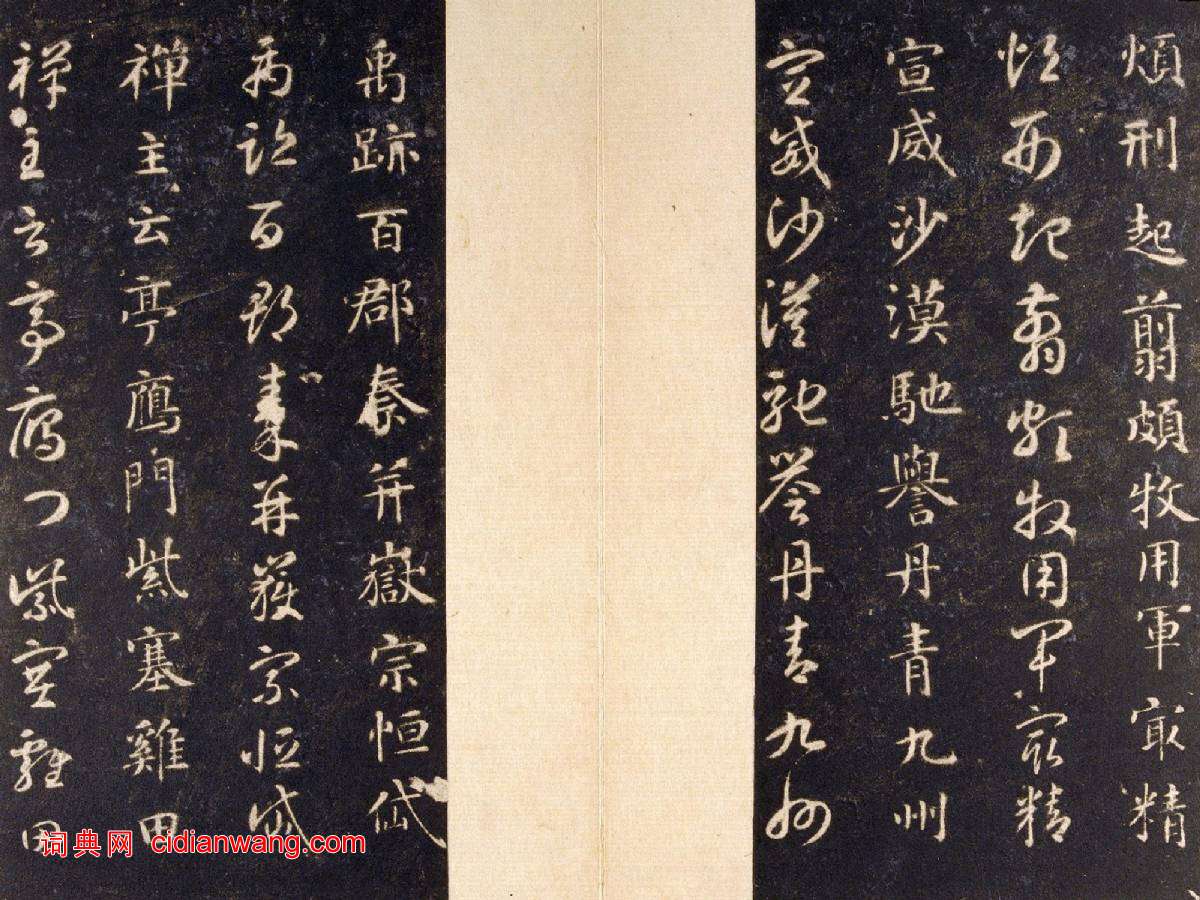 煩刑起翦頗牧用軍㝡精
煩刑起翦頗牧用軍㝡精
宣威沙漠馳譽丹青九州
宣威沙漠馳譽丹青九州
禹跡百郡秦并嶽宗恒岱
禹跡百郡秦并嶽宗恒岱
禪主云亭鴈門紫塞雞田
禪主云亭鴈門紫塞雞田
词典网 cidianwang.com